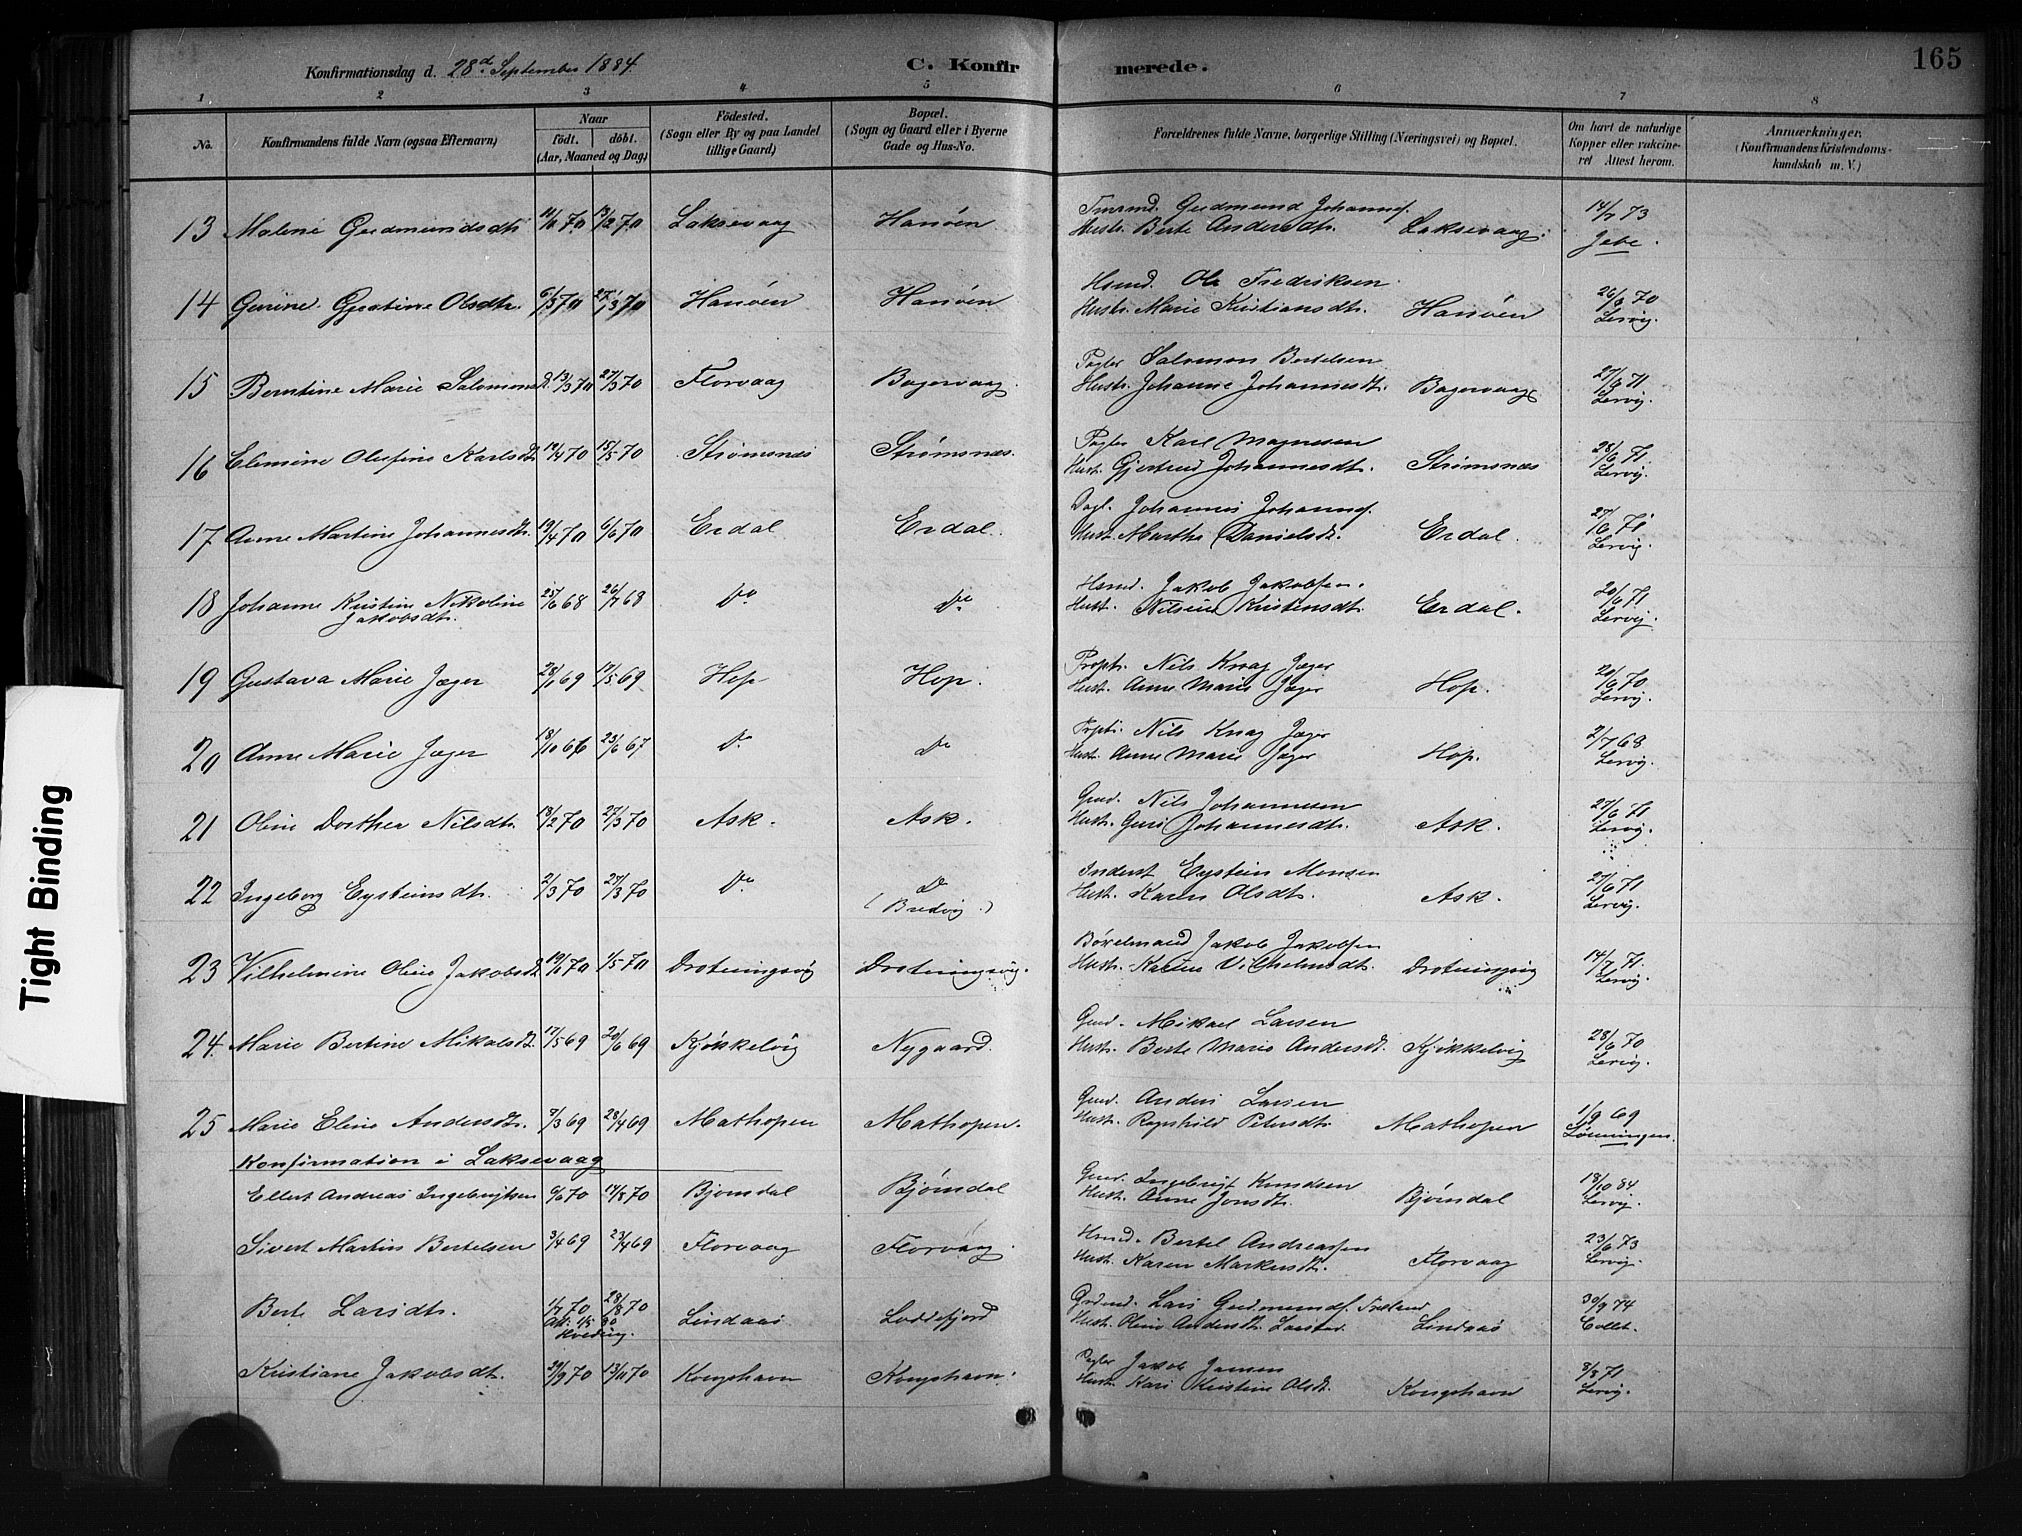 165
Konfirmationsdag d. 28d. September 1884 C. Konfirmerede.
1 2 3 4 5 6 7 8
No. Konfirmandens fulde Navn (ogsaa Efternavn) Naar født. døbt. (Aar, Maaned og Dag) Fødested. (Sogn eller By og paa Landet tillige Gaard) Bopæl. (Sogn og Gaard eller i Byerne Gade og Hus-No. Forældrenes fulde Navne, borgerlige Stilling (Næringsvei) og Bopæl. Om havt de naturlige Kopper eller vakcineret Attest herom. Anmærkninger. (Konfirmandens Kristendomskundskab m. V.)
13 Malene Gudmundsdtr 70 13/2 70 Laksevaag Hanøen Gudmund Johannes. 14/7 73
Hustr. Berte Andersdtr. Laksevaag.
14 Olsdtr. 6/3 70 27/3 70 Hanøen Hanøen Hsmd. Ole Fredriksen 26/6 70
Hustr. Marie Kristiansdtr. Hanøen Lervig.
15 Berntine Marie Salomonsd. 13/3 70 27/3 70 Florvaag Bagervaag Salomon Bertelsen 27/6 71
Hustr. Johanne Johannesdtr. Bagervaag Lervig.
16 Elenine Olufine Karlsdt. 19/4 70 15/5 70 Strømsnæs Strømsnæs. Karl Magnesen 28/6 71
Hust. Gjertrud Johannesdt. Strømsnæs Lervig.
17 Anne Martine Johannesdtr. 19/4 70 6/6 70 Erdal Erdal Dagl. Johannes Johannes.
Hust. Marthe Danielsdt. Erdal. 27/6 71 Lervig.
18 Johanne Kristine Nikoline Jakobsdtr. 25/6 68 26/7 68 Do Do Hsmd. Jakob Jakobsen.
Hust. Nilsine Kristensdt. Erdal. 20/6 71 Lervig.
19 Gustava Marie Jæger 28/1 69 17/5 69 Hop Hop. Proptr. Nils Knag Jæger
Hust. Anne Marie Jæger Hop. 20/6 70 Lervig.
20 Anne Marie Jæger 18/10 66 23/6 67 Do Do Proptr. Nils Knag Jæger
Hust. Anne Marie Jæger Hop. 2/7 68 Lervig.
21 Oline Dorthea Nilsdtr. 18/2 70 27/3 70 Ask. Ask. Gmd. Nils Johannesen
Hustr. Guri Johannesdtr. Ask. 27/6 71 Lervig.
22 Ingeborg Eysteinsdtr. 2/3 70 27/3 70 Do Do (Bredvig.) Inderst Eystein Monsen
Hust. Karen Olsdt. Ask. 27/6 71 Lervig.
23 Vilhelmine Oline Jakobsdt. 70 1/5 70 Drotningsvig Drotningsvig. Bøxelmand Jakob Jakobsen
Hustr. Karine Vilhelmsdt. Drotningsvig 14/7 71. Lervig.
24. Marie Bertine Mikalsdt. 17/5 69 20/6 69 Kjøkkelvig Nygaard. Gmd. Mikael Larsen
Hustr. Berte Marie Andersdt. Kjøkkelvig 28/6 70 Lervig.
25 Marie Eline Andersdtr. 7/3 69 28/4 69 Mathopen Mathopen. Gmd. Anders Larsen
Hustr. Ragnhild Petersdtr. Mathopen 1/9 69 Lønningen.
Konfirmation i Laksevaag
Ellert Andreas Ingebrigtsen 70 14/8 70 Bjørndal Bjørndal Gmd. Ingebrigt Knudsen
Hustr. Anne Jonsdtr. Bjørndal 18/10 84 Lervig.
Sivert Martin Bertelsen 3/4 69 23/4 69 Florvaag Florvaag. Hsmd. Bertel Andreassen
Hustr. Karen Markusdtr. Florvaag 23/6 73 Lervig.
Berte Larsdtr. 1/7 70 28/8 70 Lindaas Loddefjord Lars Gudmunds.
Hustr. Oline Andersdt. Lindaas 30/9 74 Collet.
Kristiane Jakobsdt. 29/9 70 13/11 70 Kongshavn Kongshavn. Jakob Jansen
Hustr. Kari Kristine Olsdt. Kongshavn 8/8 71 Lervig.
Tight Binding